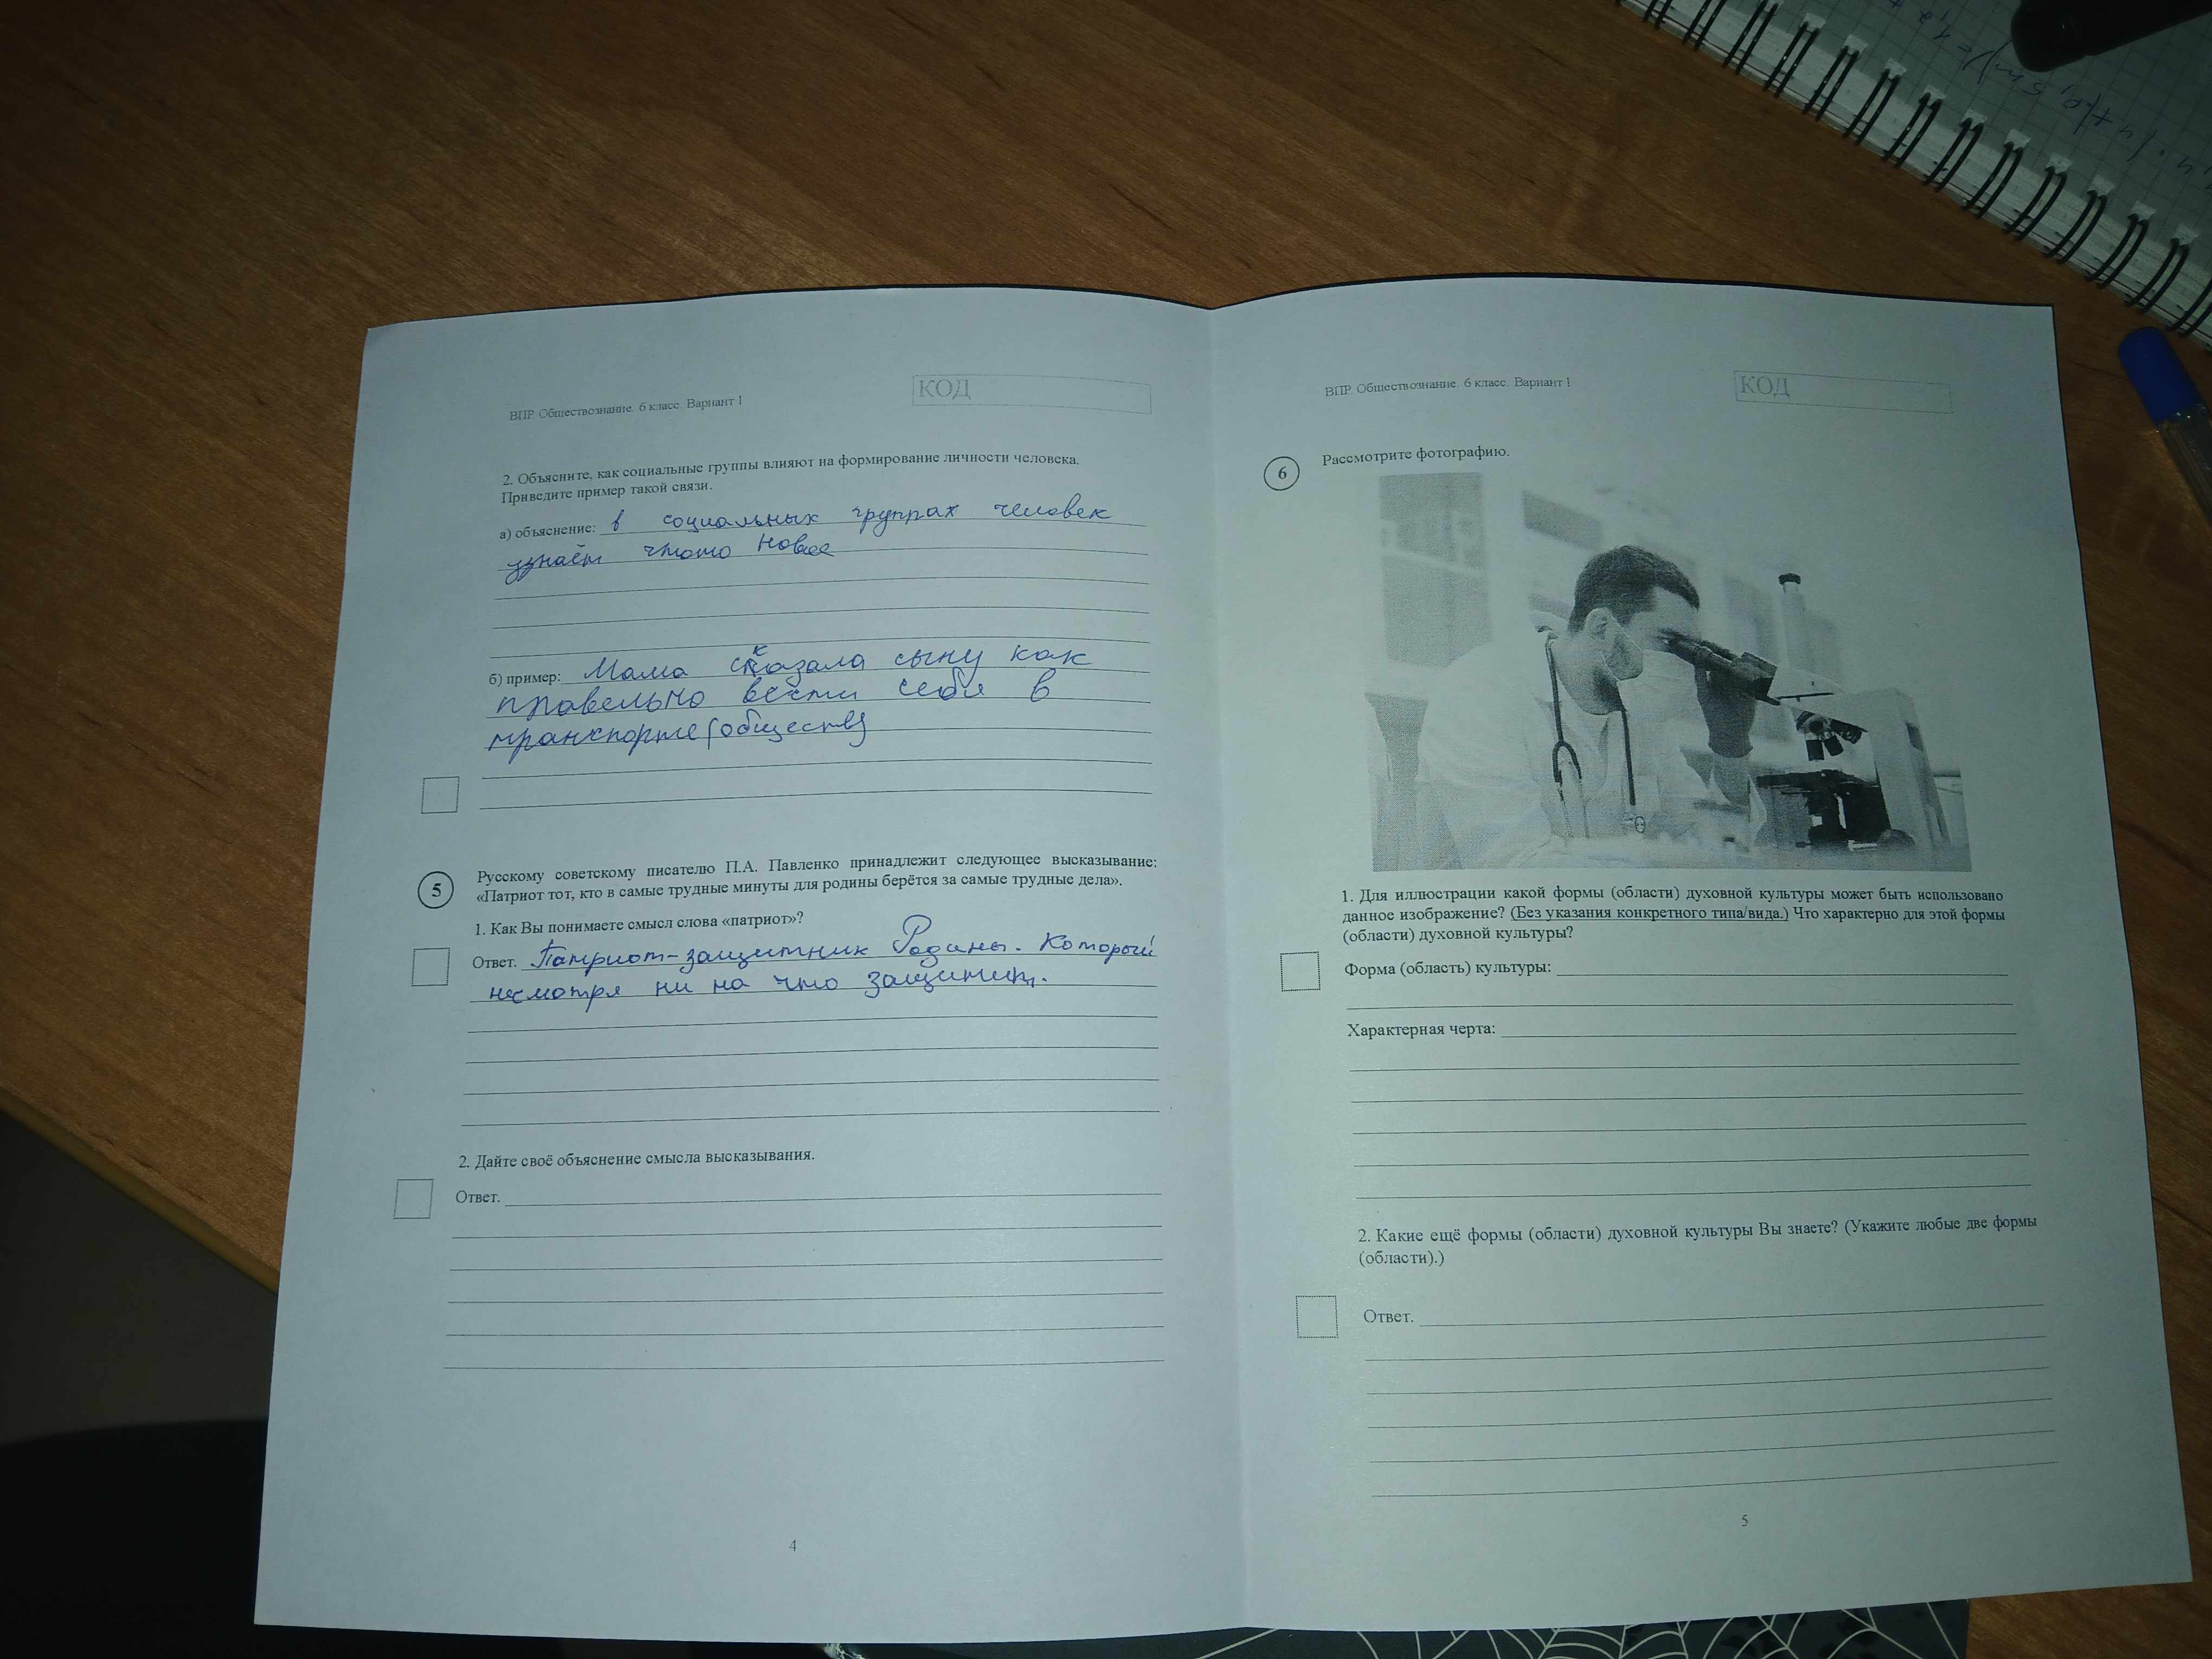 ВПР. Обществознание. 6 класс. Вариант 1
КОД
2. Объясните, как социальные группы влияют на формирование личности человека.
Приведите пример такой связи.
а) объяснение: в социальных группах человек
узнаёт чтото новое
б) пример: Мама сказала сыну как
правельно вести себя в
транспорте (обществ)
5
Русскому советскому писателю П.А. Павленко принадлежит следующее высказывание:
«Патриот тот, кто в самые трудные минуты для родины берётся за самые трудные дела».
1. Как Вы понимаете смысл слова «патриот»?
Ответ. Патриот-защитник Родины. Который
несмотря ни на что защитит.
2. Дайте своё объяснение смысла высказывания.
Ответ.
4
ВПР. Обществознание. 6 класс. Вариант 1
КОД
6
Рассмотрите фотографию.
1. Для иллюстрации какой формы (области) духовной культуры может быть использовано
данное изображение? (Без указания конкретного типа/вида.) Что характерно для этой формы
(области) духовной культуры?
Форма (область) культуры:
Характерная черта:
2. Какие ещё формы (области) духовной культуры Вы знаете? (Укажите любые две формы
(области).)
Ответ.
5